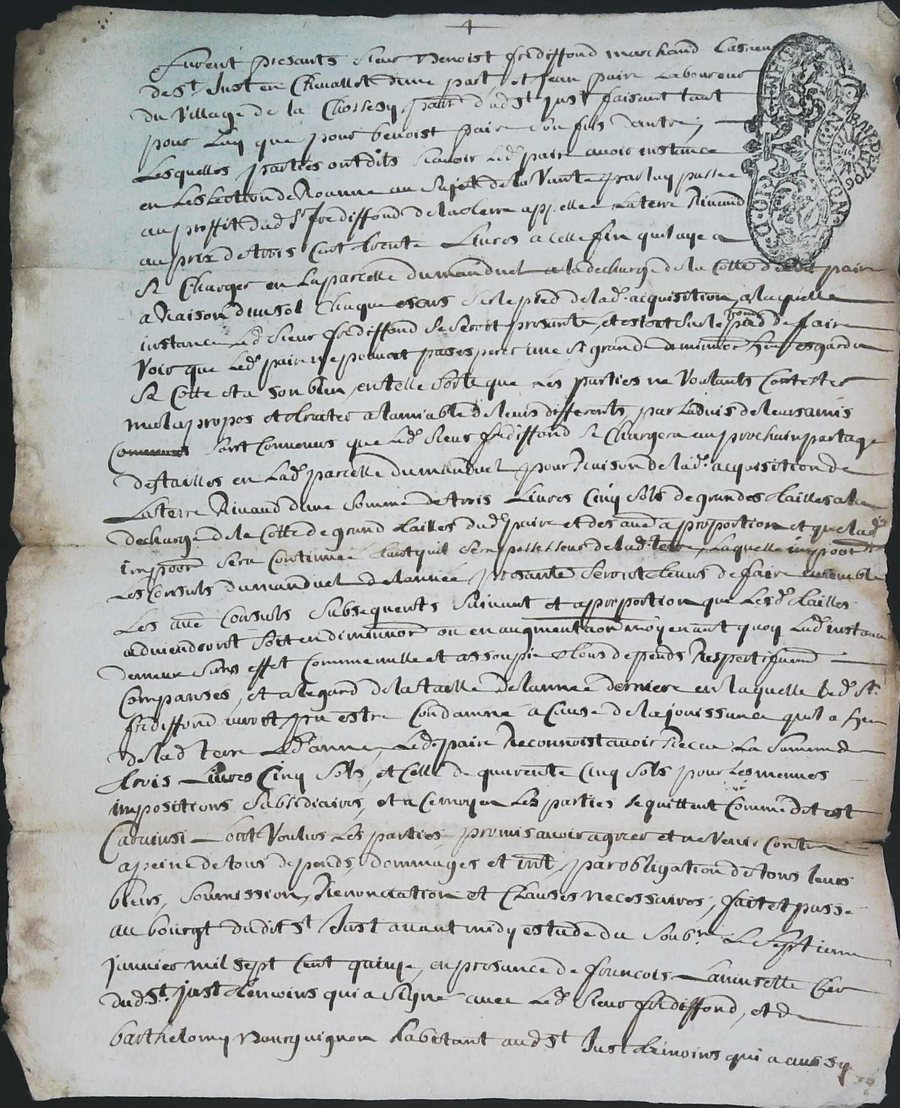 furent presants sieur Benoist frediffond marchand
de st Just en Chevallet d'une part et Jean paire Laboureur
du Village de la Chossery parr. dud st Just faisant tant
pour luy que pour benoist paire son fils dautre,
Lesquelles parties ont dits scavoir led. paire avoir instance
en Leslection de Roanne au sujet de la Vante par luy passée
au proffit dud st frediffond de la terre appellee La terre Rinaud
au prix de trois Cent trente Livres a celle fin quil aye a
se Charger en La parcelle du manduel a la decharge de la Cotte dud paire
a Raison d'un sol Chaque escus sur le pied de lad. acquisition, a laquelle
instance led. sieur frediffond se seroit presanté, et estoit sur le point de faire
Voir que Led. paire ne pouvoit pas esperer une si grande diminution heu esgard a
sa Cotte et a son bien, en telle sorte que les parties ne Voulants Contester
mal a propos et traiter a lamiable de leurs differents, par Ladvis de leurs amis
Communs sont Convenus que Led. sieur frediffond se Chargera au prochain partage
des tailles en Lad. parcelle du manduel pour Raison de lad. acquisition de
La terre Rinaud d'une somme de trois Livres Cinq sols de grandes tailles a la
descharge de la Cotte de grand tailles dud. paire et des au a proportion et que lad.
impoon sera Continuée tant quil sera possesseur de lad. terre, Laquelle impoon
Les Consuls du manduel de lannée presante seront tenus de faire ensemble
Les au Consuls subsequents suivant et a proportion que Les d. tailles
adviendront soit en diminuon ou en augmentaon moyenant quoy Lad. instance
demeure sans effet Comme nulle et assoupie tous despends Respectivement
Compansés, et a legard de la taille de lannée derniere en laquelle Led. st
frediffond auroit pu estre Condamné a Cause de la jouissance quil a heu
de lad terre Lad. année, Led. paire Reconnoist avoir Receu La somme de
trois Livres Cinq sols, et Celle de quarente Cinq sols pour Les mesmes
impositions subsidiaires, et a Ce moyen Les parties se quittent Comme dit est
Car ainsi Lont Voulu Les parties promis avoir agreer et ne Venir Contre
a peine de tous depends, dommages et int. par obligation de tous leurs
biens, soumission, Renonciation et Clauses necessaires, fait et passé
au bourgt dudit st Just avant midy estude du soubne Le septieme
janvier mil sept Cent quinze, en presance de francois Laninselle
dud st Just temoins qui a signé avec Led. sieur frediffond, et de
barthelemy Bourguignon habitant aud st Just temoins qui a aussy